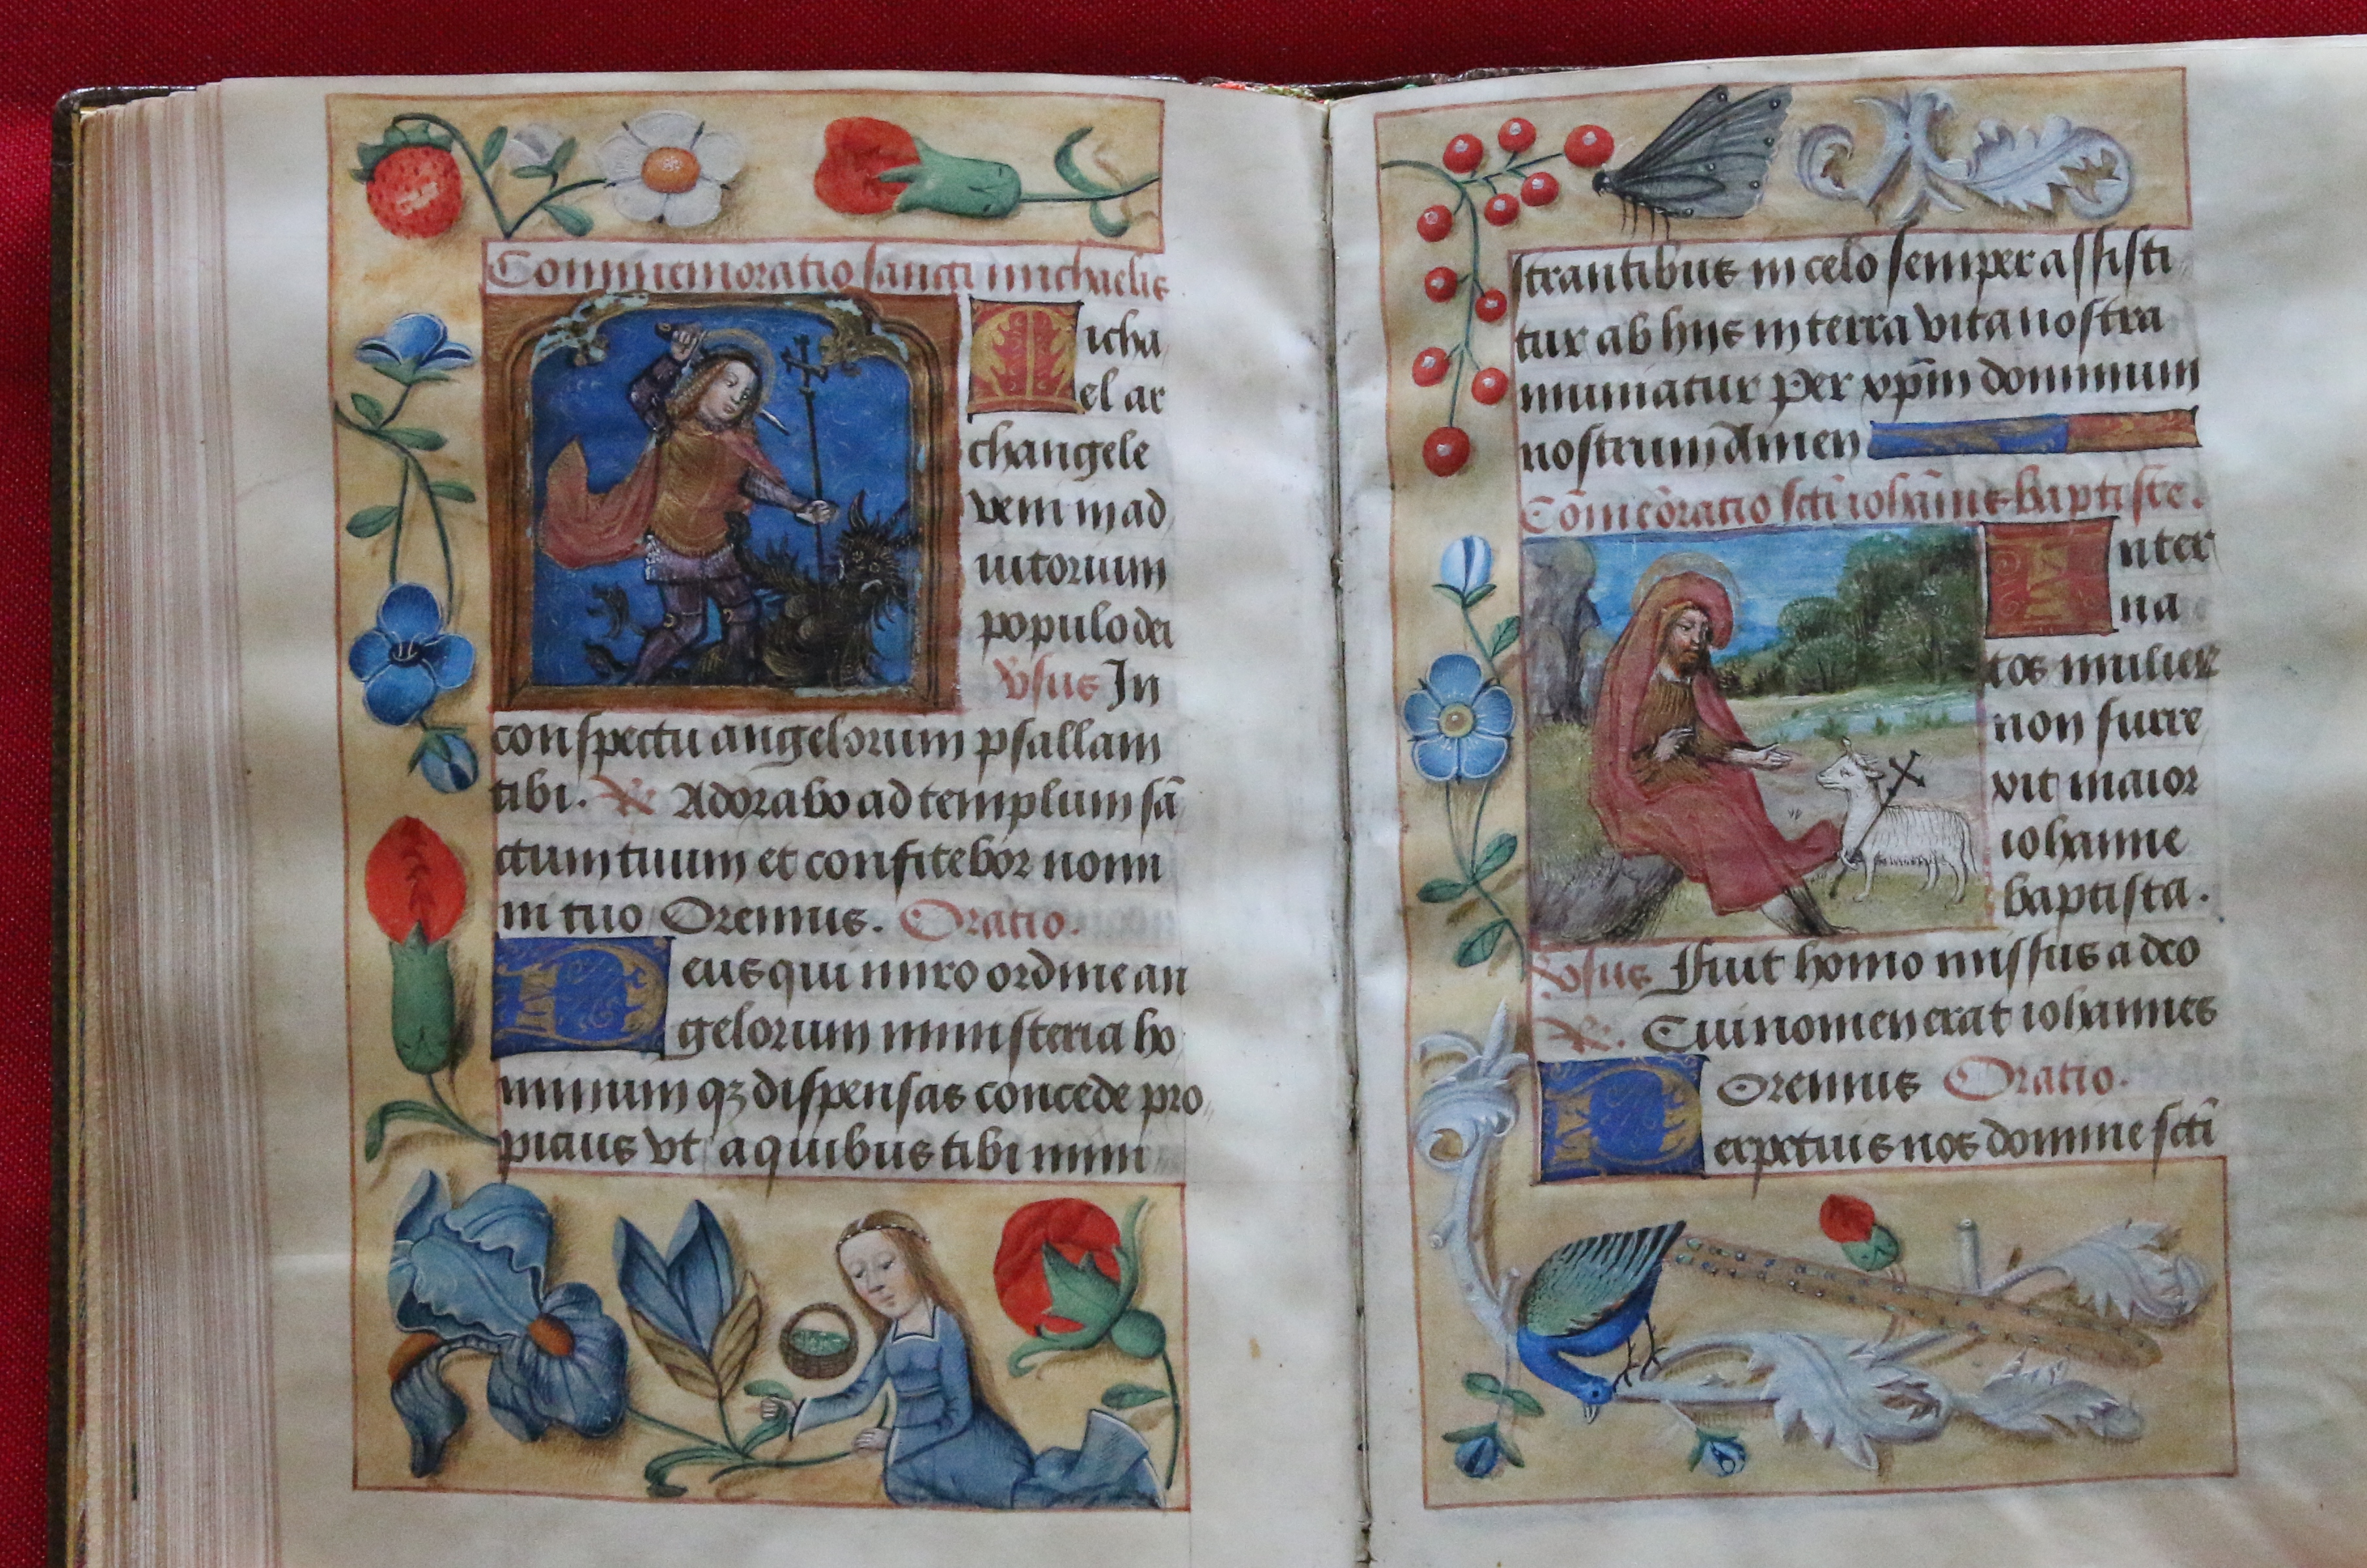 Commemoratio sancti michaelis
Micha
el ar
changele
veni in ad
iutorium
populo dei
v̄sus In
conspectu angelorum psallam
tibi. R̄ Adorabo ad templum sā
ctum tuum et confitebor nomi
ni tuo Oremus. Oratio.
Deus qui miro ordine an
gelorum ministeria ho
minum qꝫ dispensas concede pro
picius vt a quibus tibi mini
strantibus in celo semper assisti
tur ab hiis in terra vita nostra
muniatur Per xp̄m dominum
nostrum Amen
Cōmeōratio scti iohānis baptiste.
Inter
na
tos mulier
non surre
vit maior
iohanne
baptista.
v̄sus Fuit homo missus a deo
R̄. Cui nomen erat iohannes
Oremus Oratio.
Perpetuis nos domine sctī